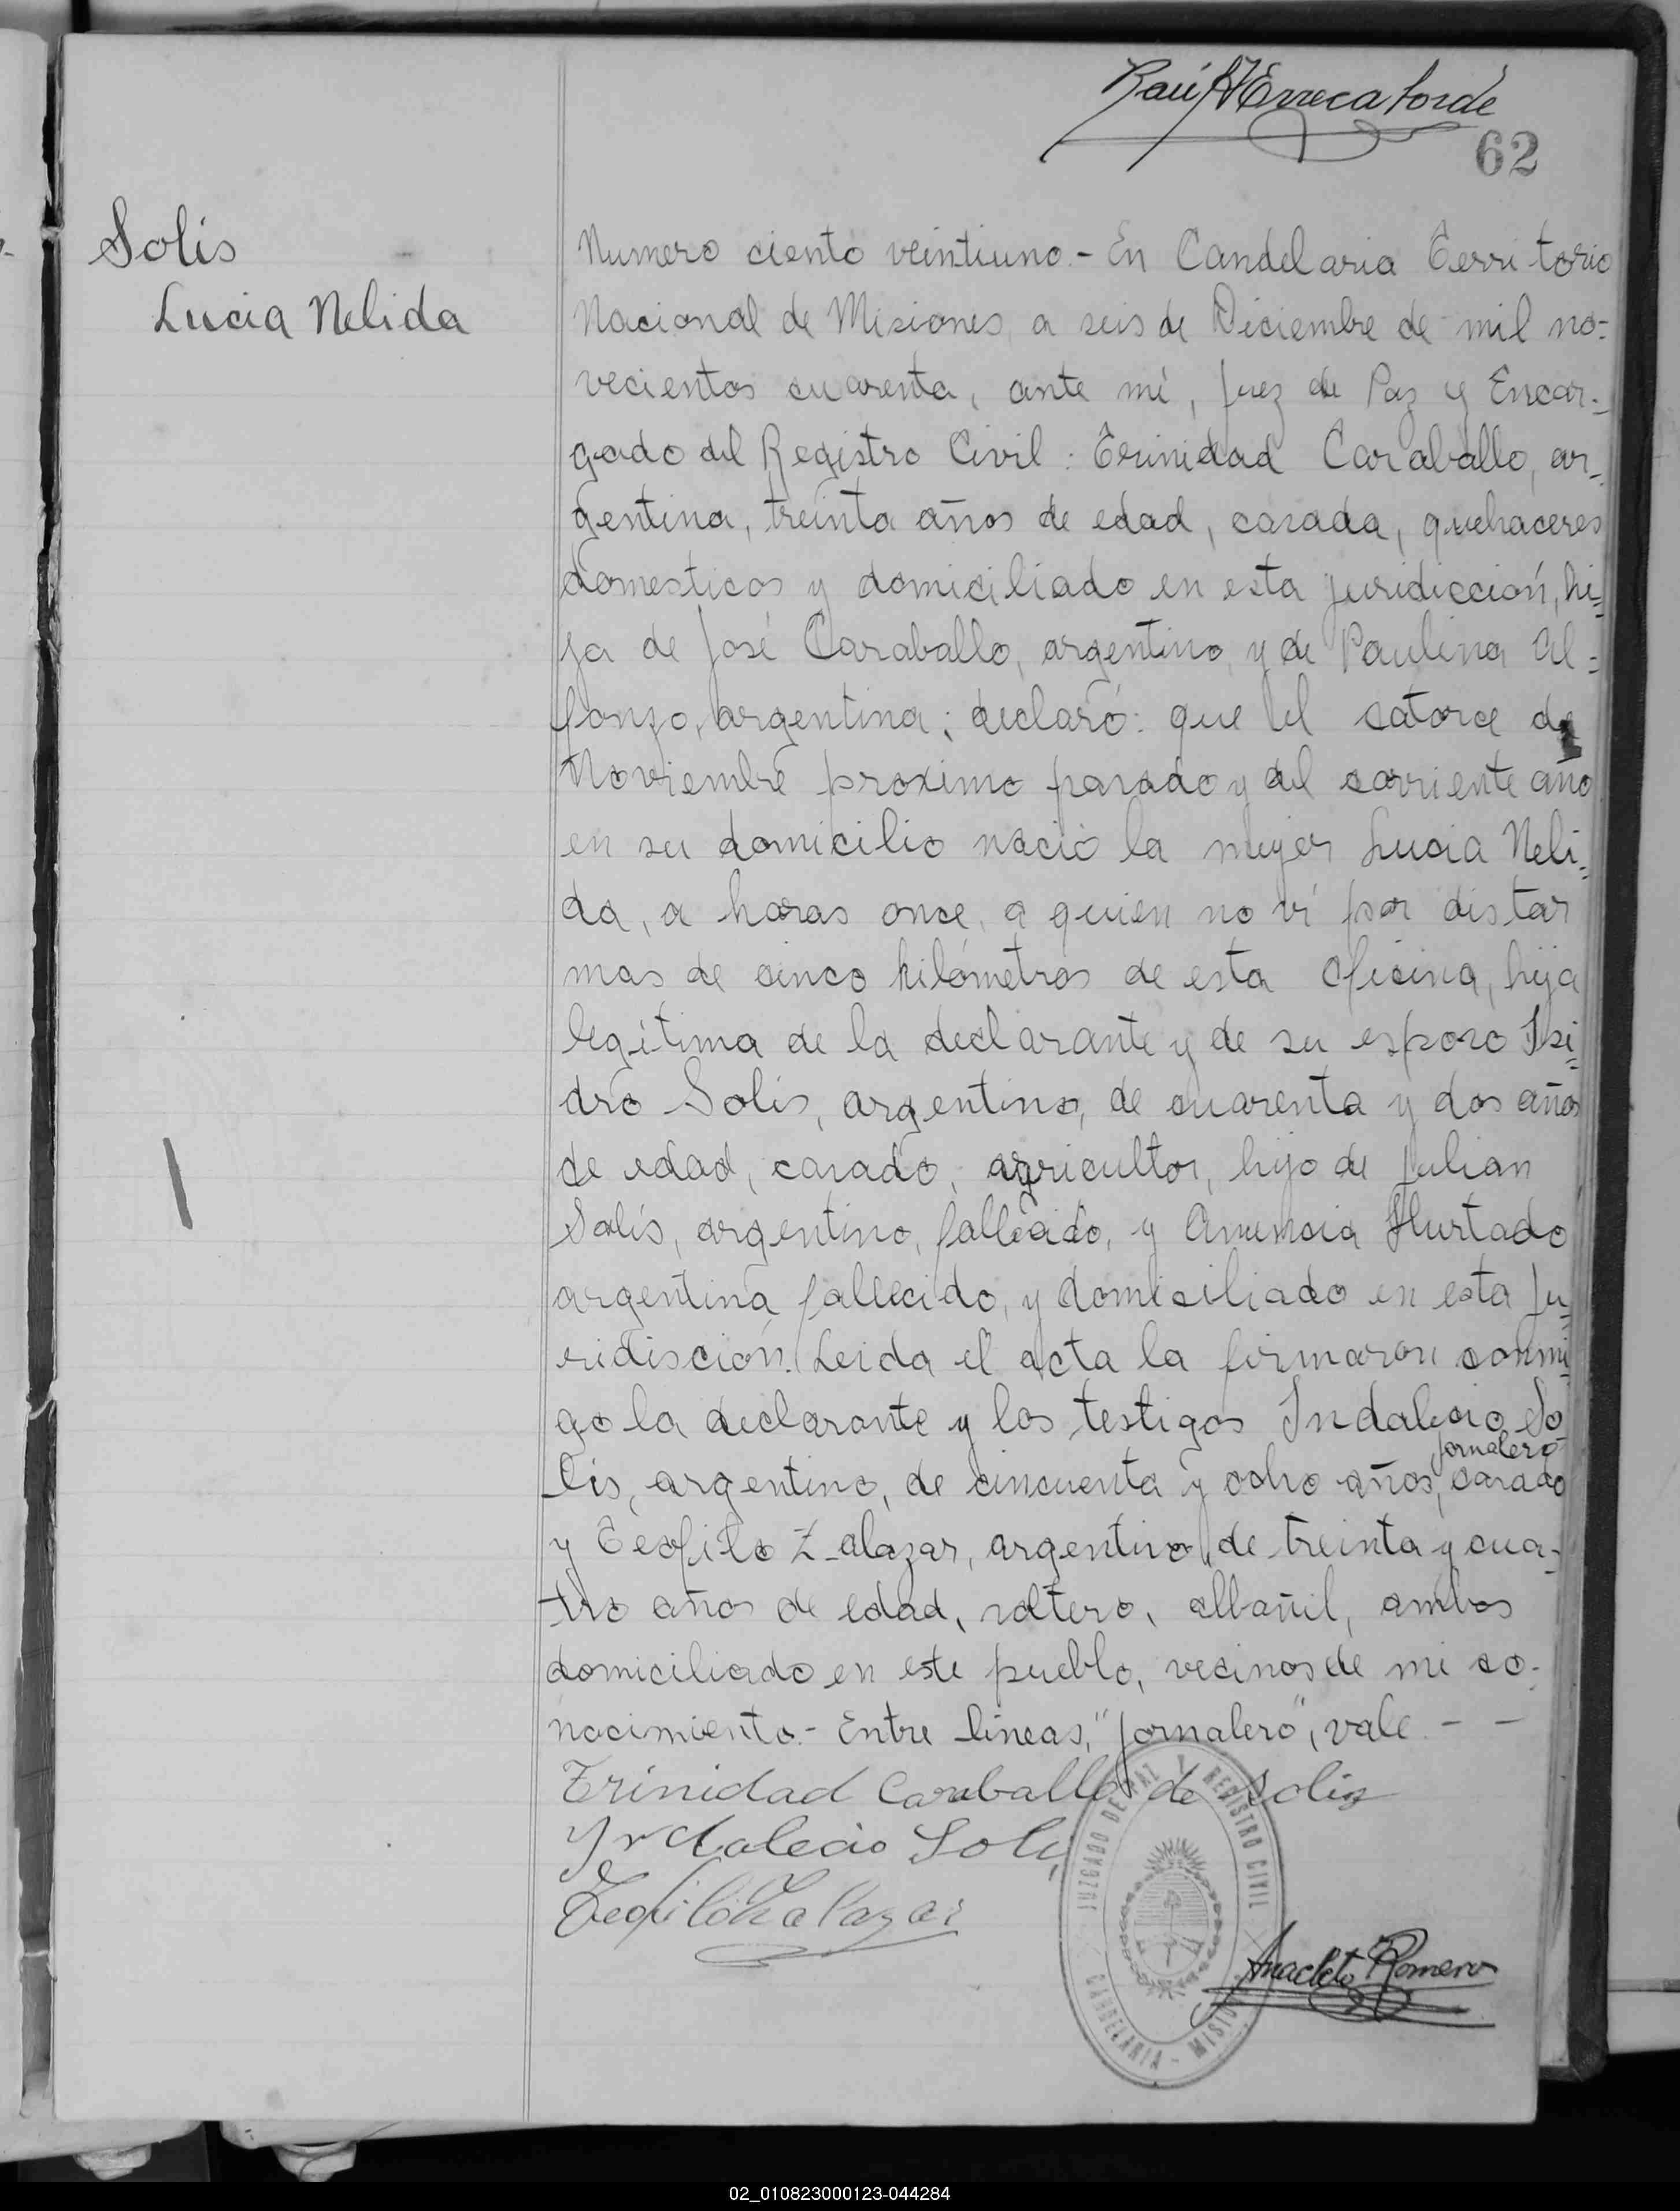 Raúl H Errecatorde
62
Solis
Lucia Nelida
Numero ciento veintiuno.- En Candelaria Territorio
Nacional de Misiones, a seis de Diciembre de mil no-
vecientos cuarenta, ante mí, Juez de Paz y Encar-
gado del Registro Civil: Trinidad Caraballo, ar-
gentina, treinta años de edad, casada, quehaceres
domesticos y domiciliado en esta juridiccion, hi-
ja de José Caraballo, argentino, y de Paulina Al-
fonzo, argentina; declaró: que el catorce de
Noviembre proximo pasado y del corriente año
en su domicilio nació la mujer Lucia Neli-
da, a horas once, a quien no ví por distar
mas de cinco kilómetros de esta oficina, hija
legítima de la declarante y de su esposo Isi-
dro Solis, argentino, de cuarenta y dos años
de edad, casado, agricultor, hijo de Julian
Solis, argentino, fallecido, y Anuncia Hurtado
argentina fallecido, y domiciliado en esta Ju-
ridiscion. Leida el acta la firmaron conmi-
go la declarante y los testigos Indalecio So
jornalero
lis, argentino, de cincuenta y ocho años, casado
y Teofilo Zalazar, argentino, de treinta y cua-
tro años de edad, soltero, albañil, ambos
domiciliado en este pueblo, vecinos de mi co-
nocimiento.- Entre lineas, "jornalero", vale - -
Trinidad Caraballo de Solis
Yndalecio Solis
Teofilo Zalazar
JUZGADO DE PAZ Y REGISTRO CIVIL
CANDELARIA - MISIONES
Anacleto Romero
02_010823000123-044284